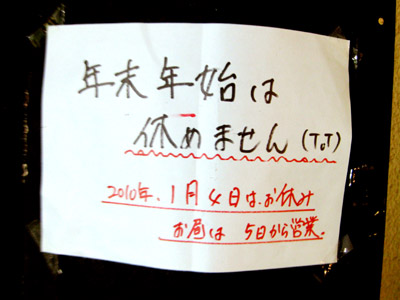 年末年始は
休めません(ToT)
2010年、1月4日は、お休み
お昼は 5日から営業。